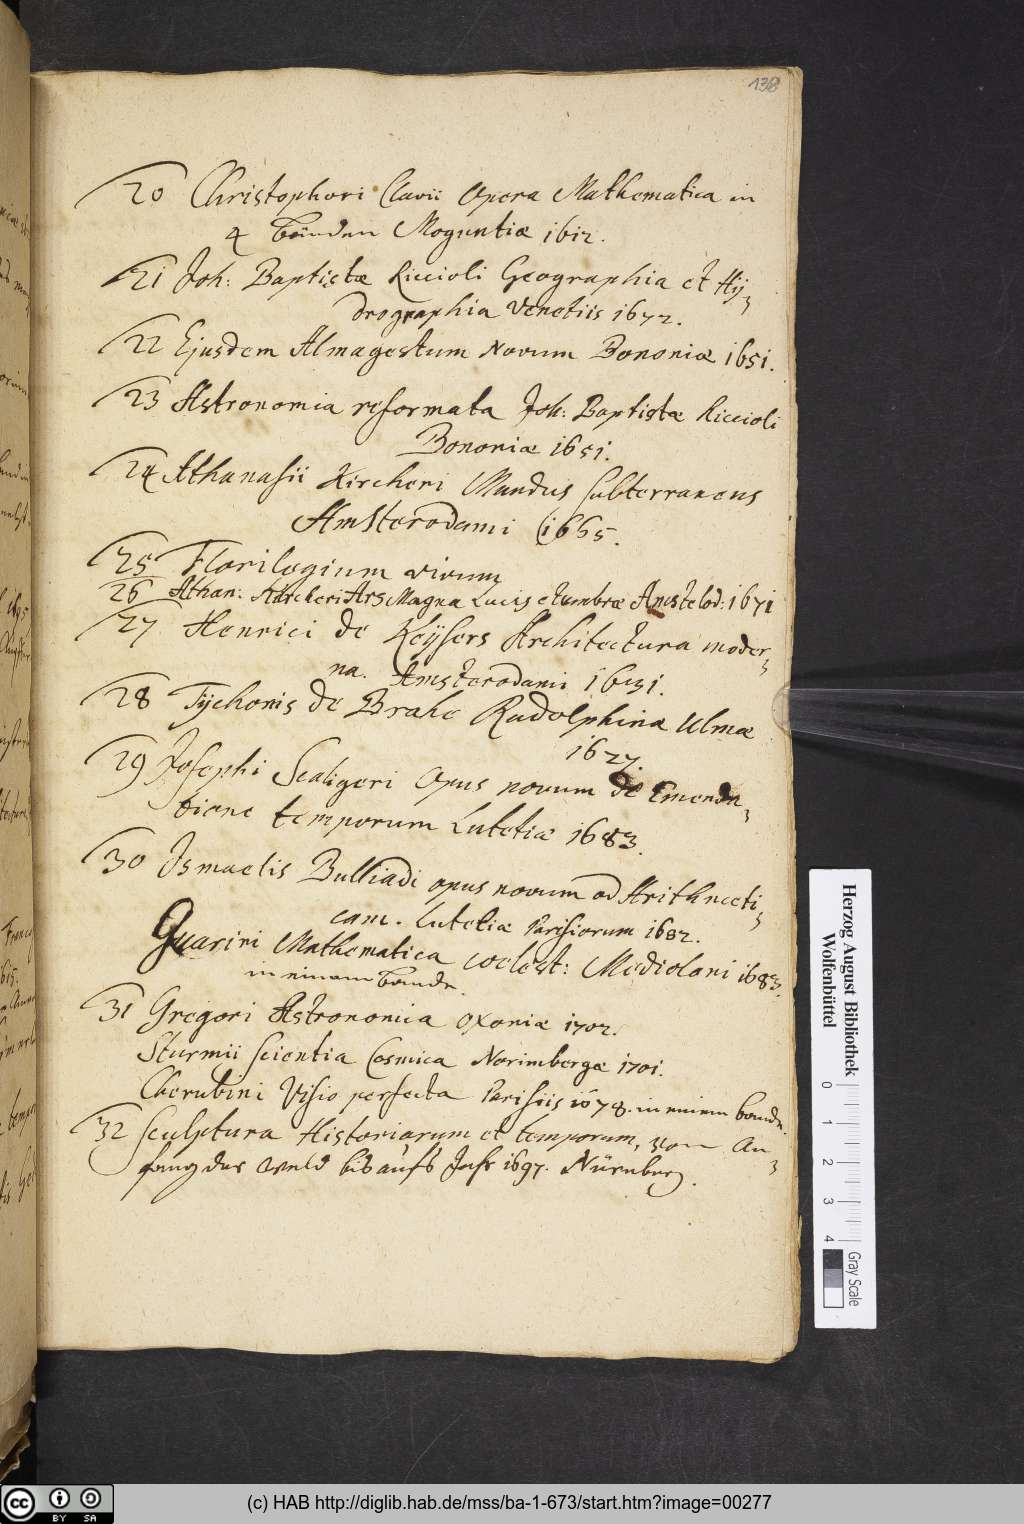 138
20 Christophori Clavii Opera Mathematica in
4 bänden Moguntiæ 1612.
21 Joh: Baptistæ Riccioli Geographia et Hÿ=
drographia Venetiis 1672.
22 Ejusdem Almagestum Novum Bononiæ 1651.
23 Astronomia reformata Joh: Baptistæ Riccioli
Bononiæ 1651.
24 Athanasii Kircheri Mundus subterraneus
Amsterodami 1665.
25 Florilegium vivum
26 Athan: Kircheri Ars Magna Lucis et umbræ Amstelod: 1671
27 Henrici de Keÿsers Architectura moder=
na. Amsterodami 1631.
28 Tÿchonis de Brahe Rudolphinæ Ulmæ
1627.
29 Josephi Scaligeri Opus novum de Emenda=
tione temporum Lutetiæ 1683.
30 Ismaelis Bulliadi opus novum ad Arithmeti=
cam. Lutetiæ Parisiorum 1682.
Guarini Mathematica coelest: Mediolani 1683.
in einem bande.
31 Gregori Astronomia Oxoniæ 1702.
Sturmii scientia Cosmica Norimbergæ 1701.
Cherubini Visio perfecta Parisiis 1678. in einem bande.
32 Sculptura Historiarum et temporum, von An=
fang der Weld bis aufs Jahr 1697. Nürnberg.
Herzog August Bibliothek
Wolfenbüttel
0 1 2 3 4
Gray Scale
cc BY SA
(c) HAB http://diglib.hab.de/mss/ba-1-673/start.htm?image=00277